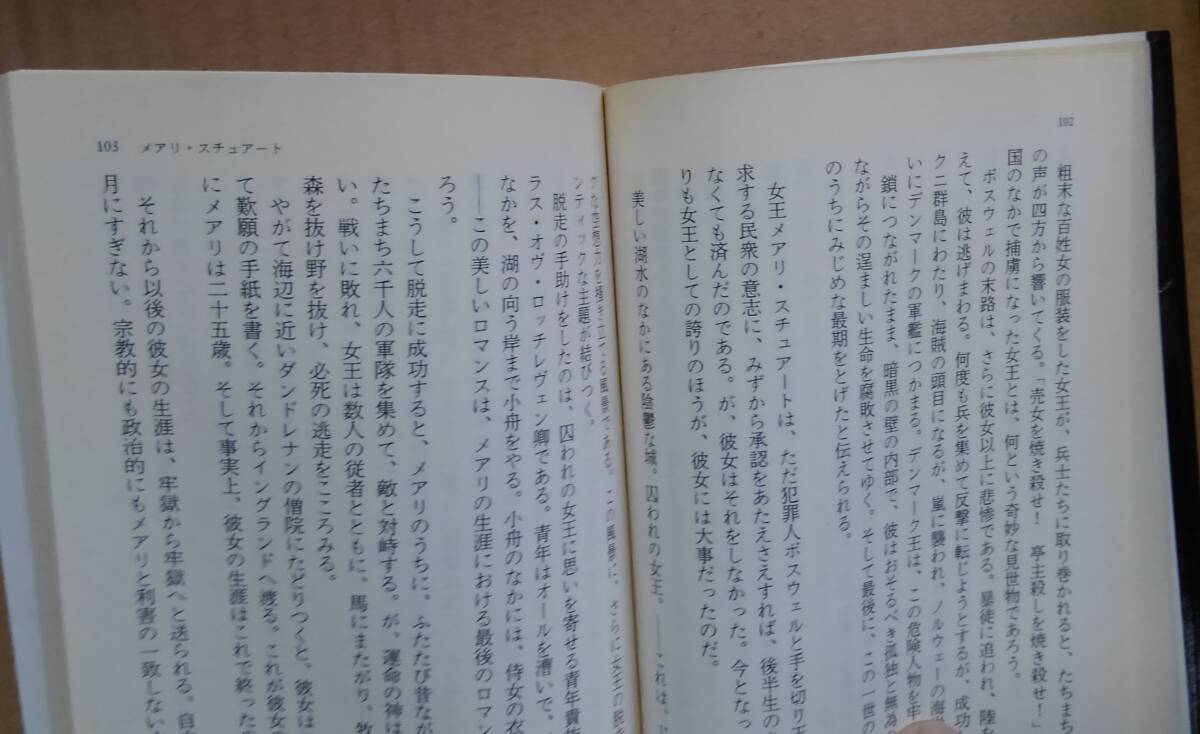 102
粗末な百姓女の服装をした女王が、兵士たちに取り巻かれると、たちまち
の声が四方から響いてくる。「売女を焼き殺せ! 亭主殺しを焼き殺せ!」
国のなかで捕虜になった女王とは、何という奇妙な見世物であろう。
ボスウェルの末路は、さらに彼女以上に悲惨である。暴徒に追われ、陸を
えて、彼は逃げまわる。何度も兵を集めて反撃に転じようとするが、成功
クニ群島にわたり、海賊の頭目になるが、嵐に襲われ、ノルウェーの海
いにデンマークの軍艦につかまる。デンマーク王は、この危険人物を牢
鎖につながれたまま、暗黒の壁の内部で、彼はおそるべき孤独と無為の
ながらその逞ましい生命を腐敗させてゆく。そして最後に、この一世の
のうちにみじめな最期をとげたと伝えられる。
女王メアリ・スチュアートは、ただ犯罪人ボスウェルと手を切り王
求する民衆の意志に、みずから承認をあたえさえすれば、後半生の
なくても済んだのである。が、彼女はそれをしなかった。今となっ
りも女王としての誇りのほうが、彼女には大事だったのだ。
美しい湖水のなかにある陰鬱な城。囚われの女王。――これは、
クな空想力を掻き立てる風景である。この風景に、さらに女王の脱
ンティックな主題が結びつく。
脱走の手助けをしたのは、囚われの女王に思いを寄せる青年貴族
ラス・オヴ・ロッチレヴェン卿である。青年はオールを漕いで、
なかを、湖の向う岸まで小舟をやる。小舟のなかには、侍女の衣
――この美しいロマンスは、メアリの生涯における最後のロマン
ろう。
こうして脱走に成功すると、メアリのうちに、ふたたび昔なが
たちまち六千人の軍隊を集めて、敵と対峙する。が、運命の神は
い。戦いに敗れ、女王は数人の従者とともに、馬にまたがり、牧
森を抜け野を抜け、必死の逃走をこころみる。
やがて海辺に近いダンドレナンの僧院にたどりつくと、彼女は
て歎願の手紙を書く。それからイングランドへ渡る。これが彼女の
にメアリは二十五歳。そして事実上、彼女の生涯はこれで終ったの
それから以後の彼女の生涯は、牢獄から牢獄へと送られる。自
月にすぎない。宗教的にも政治的にもメアリと利害の一致しない
103 メアリ・スチュアート